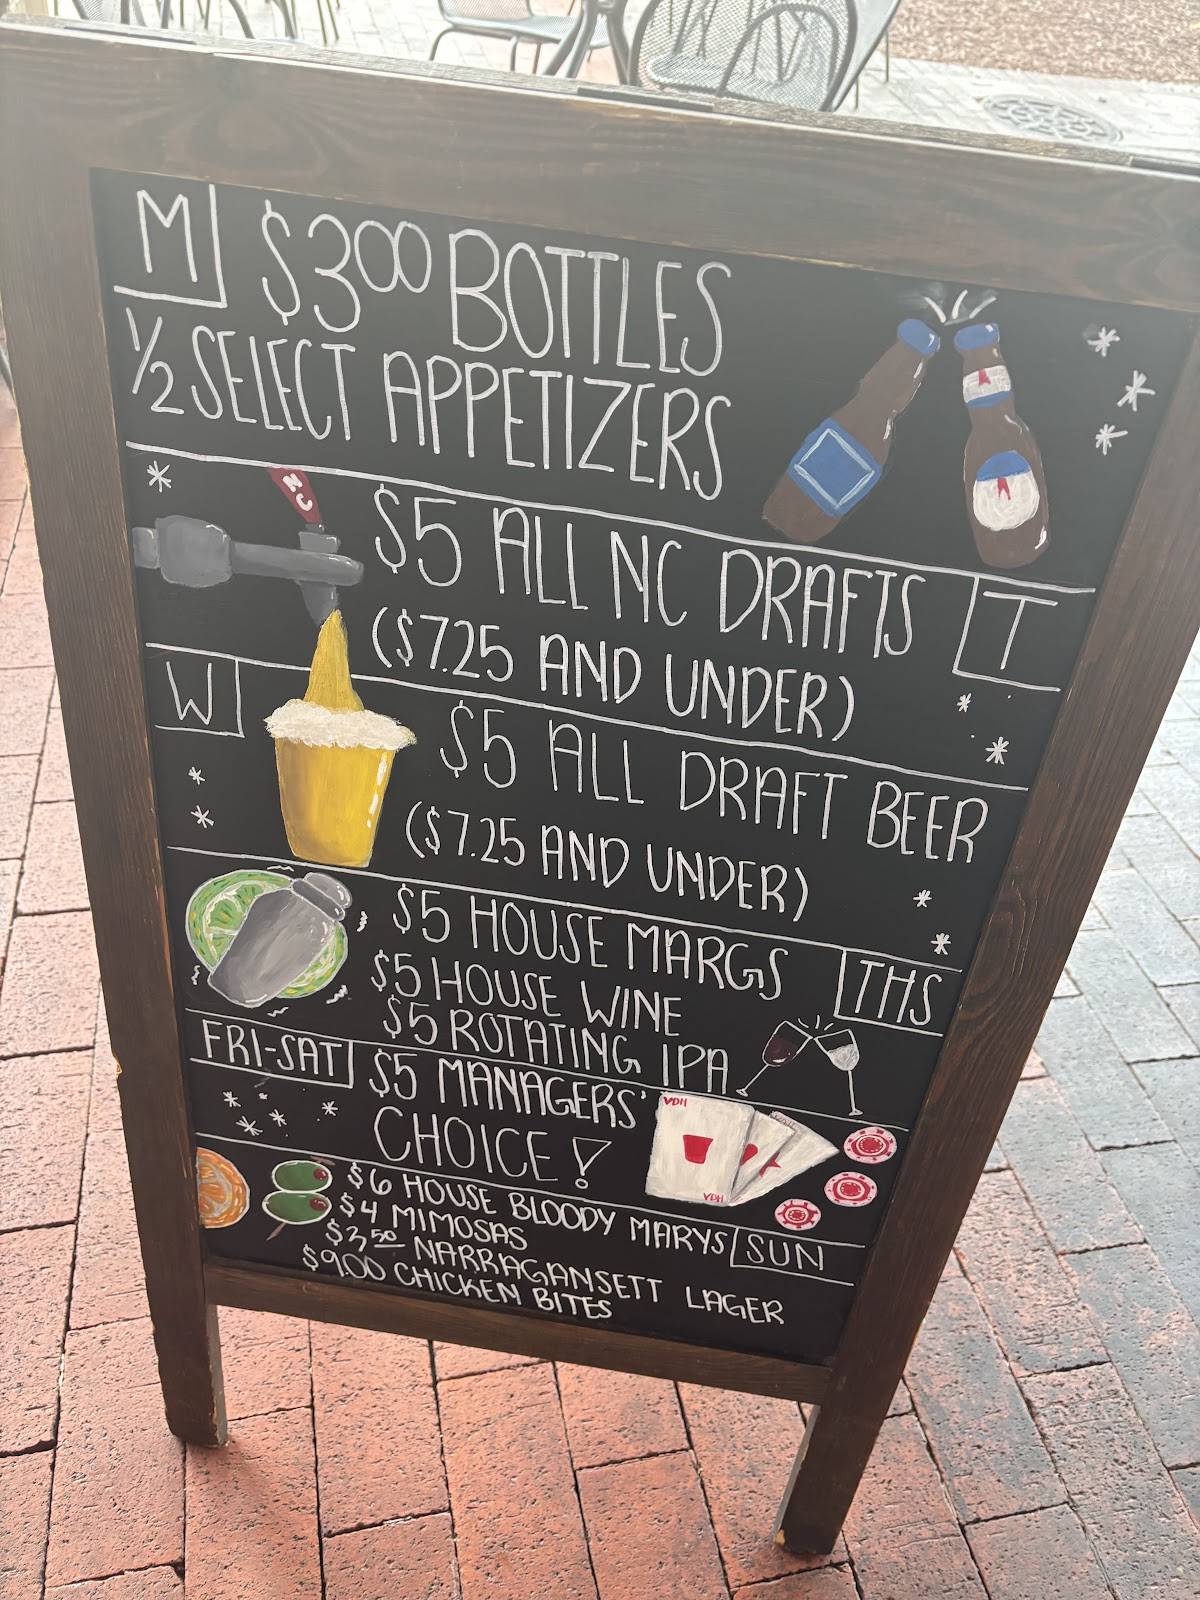 M $3.00 BOTTLES
1/2 SELECT APPETIZERS
NC
$5 ALL NC DRAFTS T
($7.25 AND UNDER)
W $5 ALL DRAFT BEER
($7.25 AND UNDER)
$5 HOUSE MARGS THS
$5 HOUSE WINE
$5 ROTATING IPA
FRI-SAT $5 MANAGERS'
CHOICE!
VDH
VDH
$6 HOUSE BLOODY MARYS SUN
$4 MIMOSAS
$3.50 NARRAGANSETT LAGER
$9.00 CHICKEN BITES